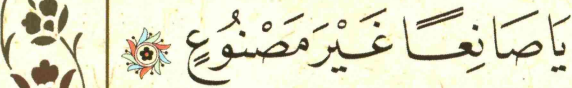 يَا صَانِعًا غَيْرَ مَصْنُوعٍ